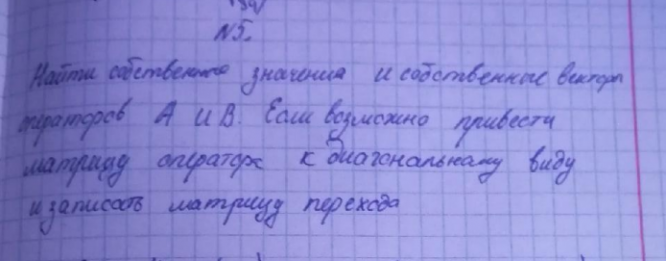 N5.
Найти собственные значения и собственные вектора
операторов А и В. Если возможно привести
матрицу оператора к диагональному виду
и записать матрицу перехода